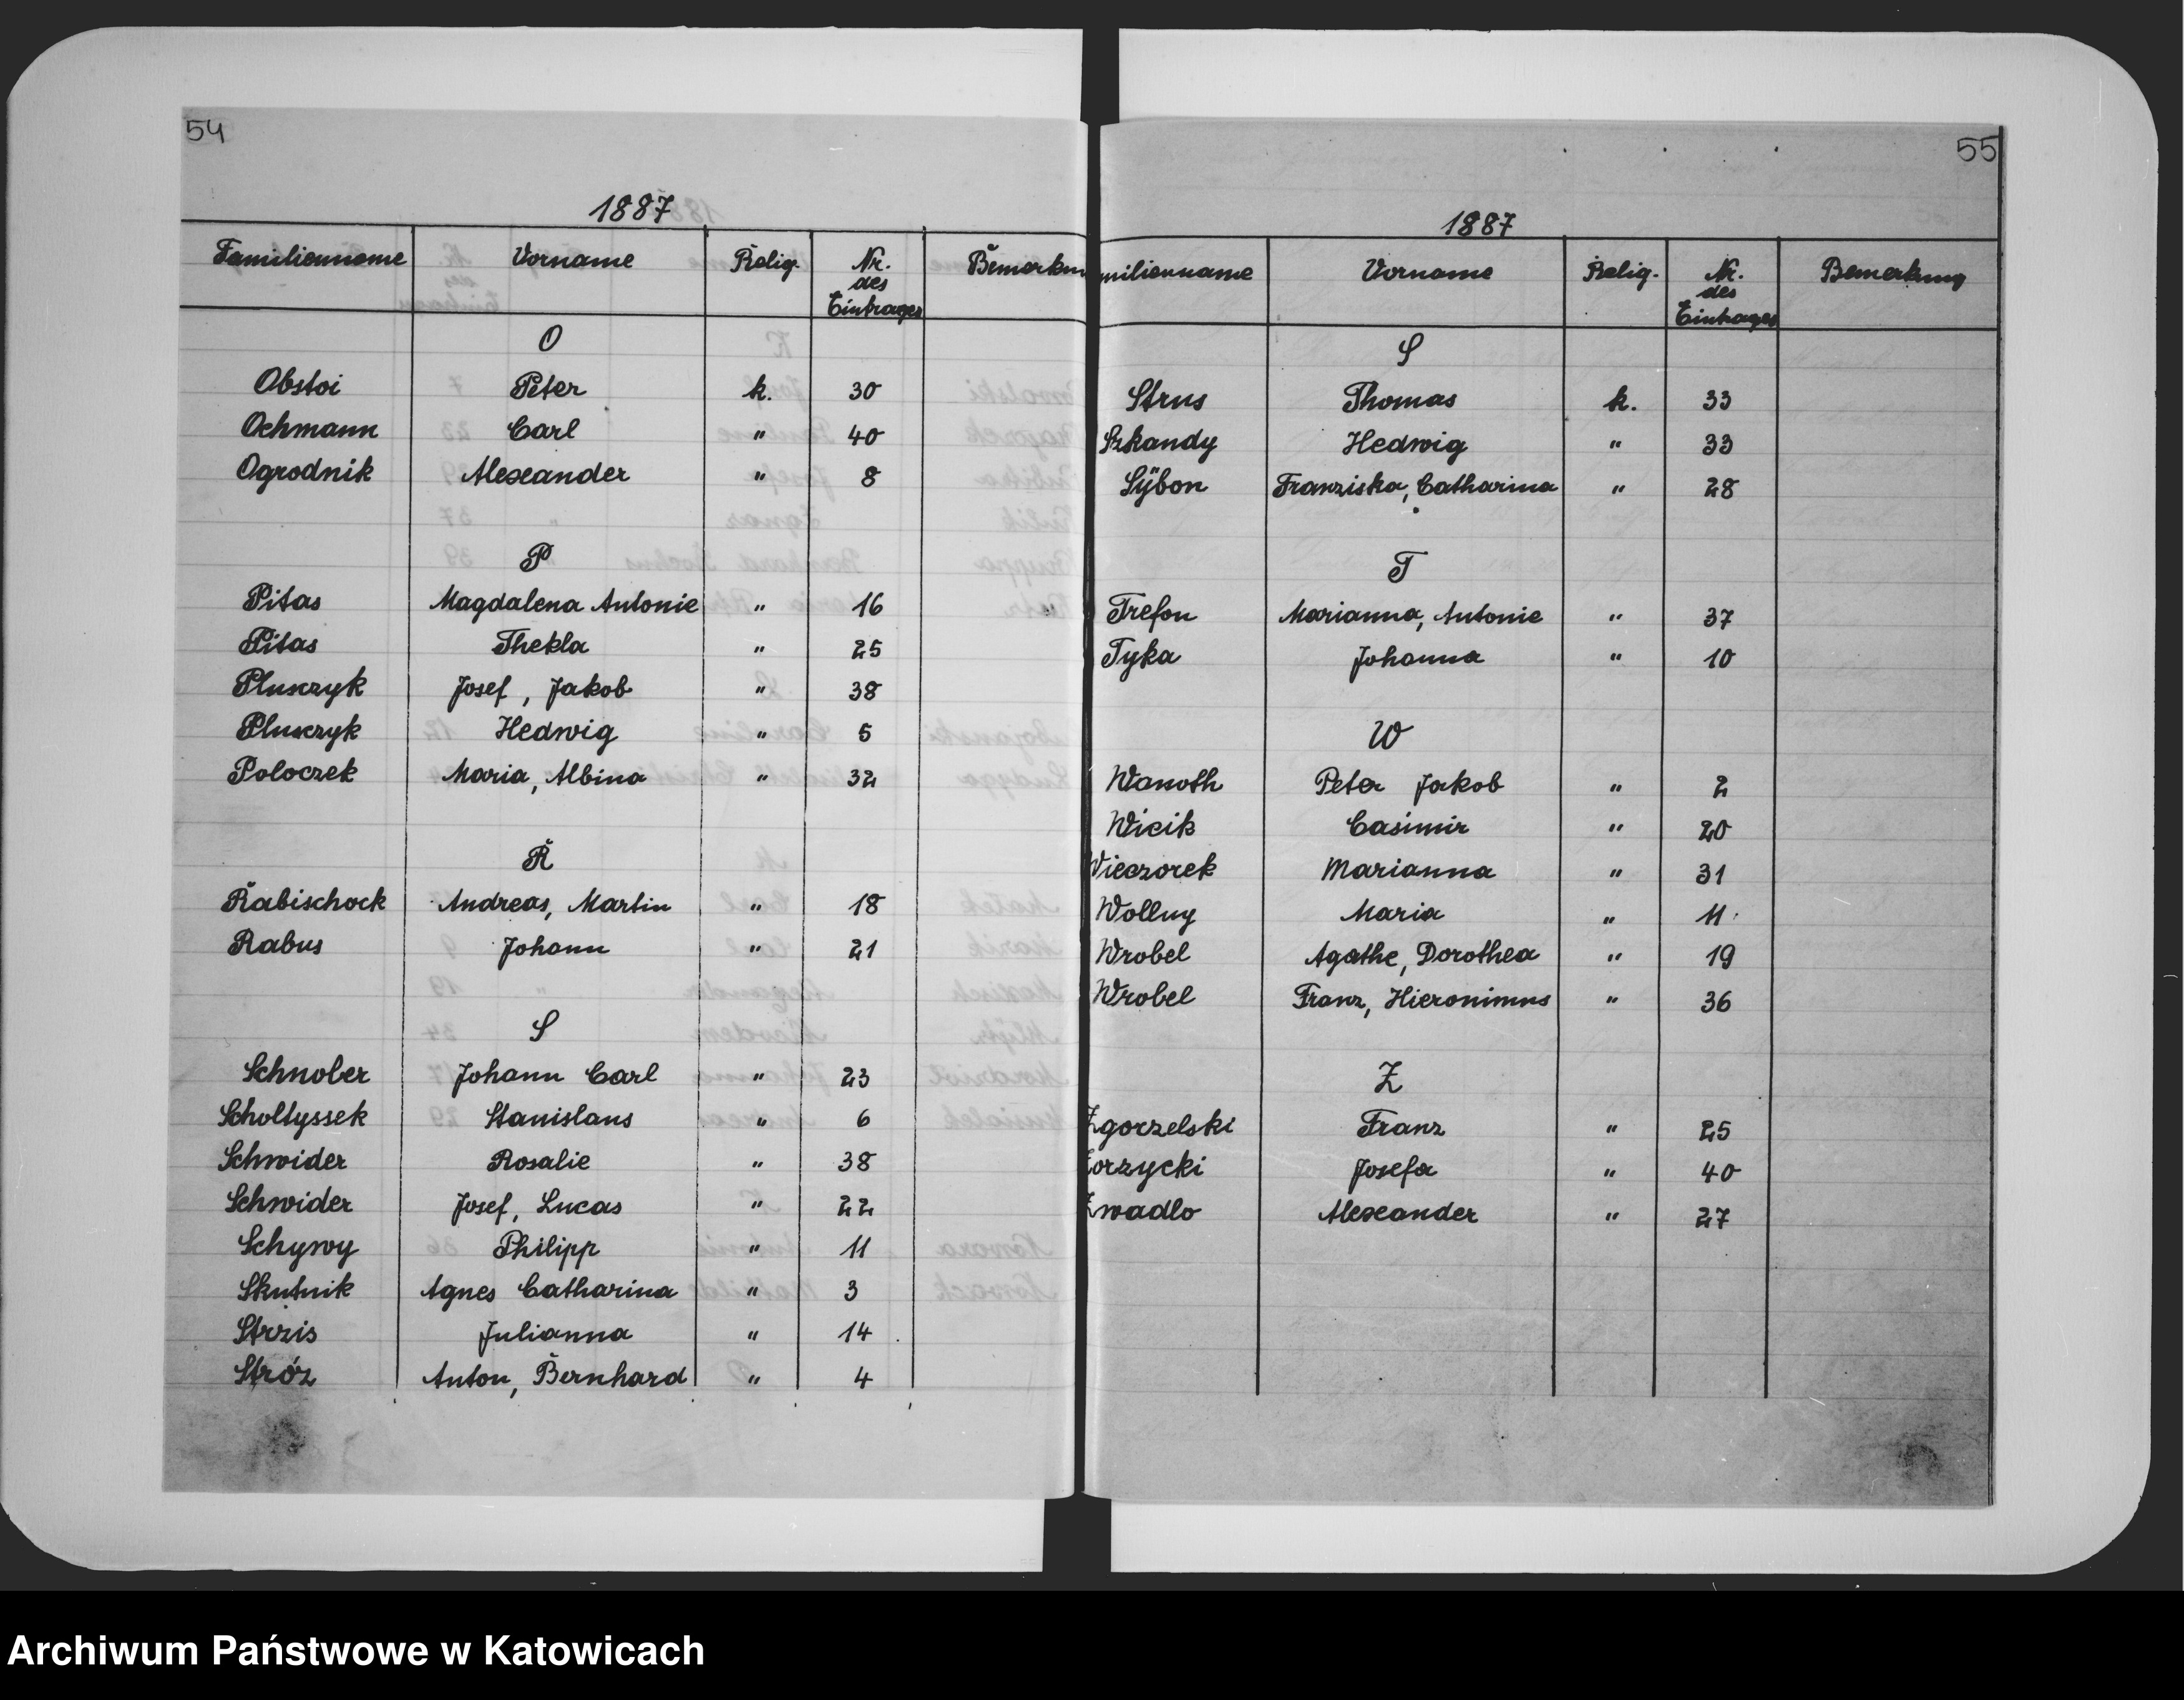 54
1887
Familienname Vorname Relig. Nr. des Eintrages Bemerkun
O
Obstoi Peter k. 30
Ochmann Carl " 40
Ogrodnik Alexander " 8
P
Pitas Magdalena Antonie " 16
Pitas Thekla " 25
Pluszzyk Josef, Jakob " 38
Pluszzyk Hedwig " 5
Poloczek Maria, Albina " 32
R
Rabischock Andreas, Martin " 18
Rabus Johann " 21
S
Schnober Johann Carl " 23
Scholtyssek Stanislaus " 6
Schwider Rosalie " 38
Schwider Josef, Lucas " 22
Schywy Philipp " 11
Skutnik Agnes Catharina " 3
Strzis Julianna " 14
Stróz Anton, Bernhard " 4
55
1887
milienname Vorname Relig. Nr. des Eintrages Bemerkung
S
Strus Thomas k. 33
Szkandy Hedwig " 33
Sÿbon Franziska, Catharina " 28
T
Trefon Marianna, Antonie " 37
Tyka Johanna " 10
W
Wanoth Peter Jakob " 2
Wicik Casimir " 20
Wieczorek Marianna " 31
Wollny Maria " 11
Wrobel Agathe, Dorothea " 19
Wrobel Franz, Hieronimus " 36
Z
Zgorzelski Franz " 25
Zorzycki Josefa " 40
Zwadlo Alexander " 27
Archiwum Państwowe w Katowicach